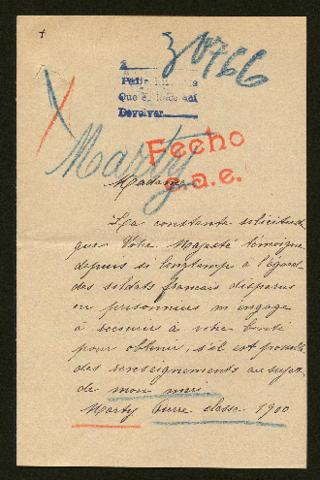 30766
A
Pedir
Que
Devolver
Marty
Fecho
e.a.e.
Madame
La constante sollicitude
que Votre Majesté témoigne
depuis si longtemps à l'égard
des soldats français disparus
ou prisonniers m'engage
à recourir à votre bonté
pour obtenir, s'il est possible
des renseignements au sujet
de mon mari.
Marty Pierre classe 1900